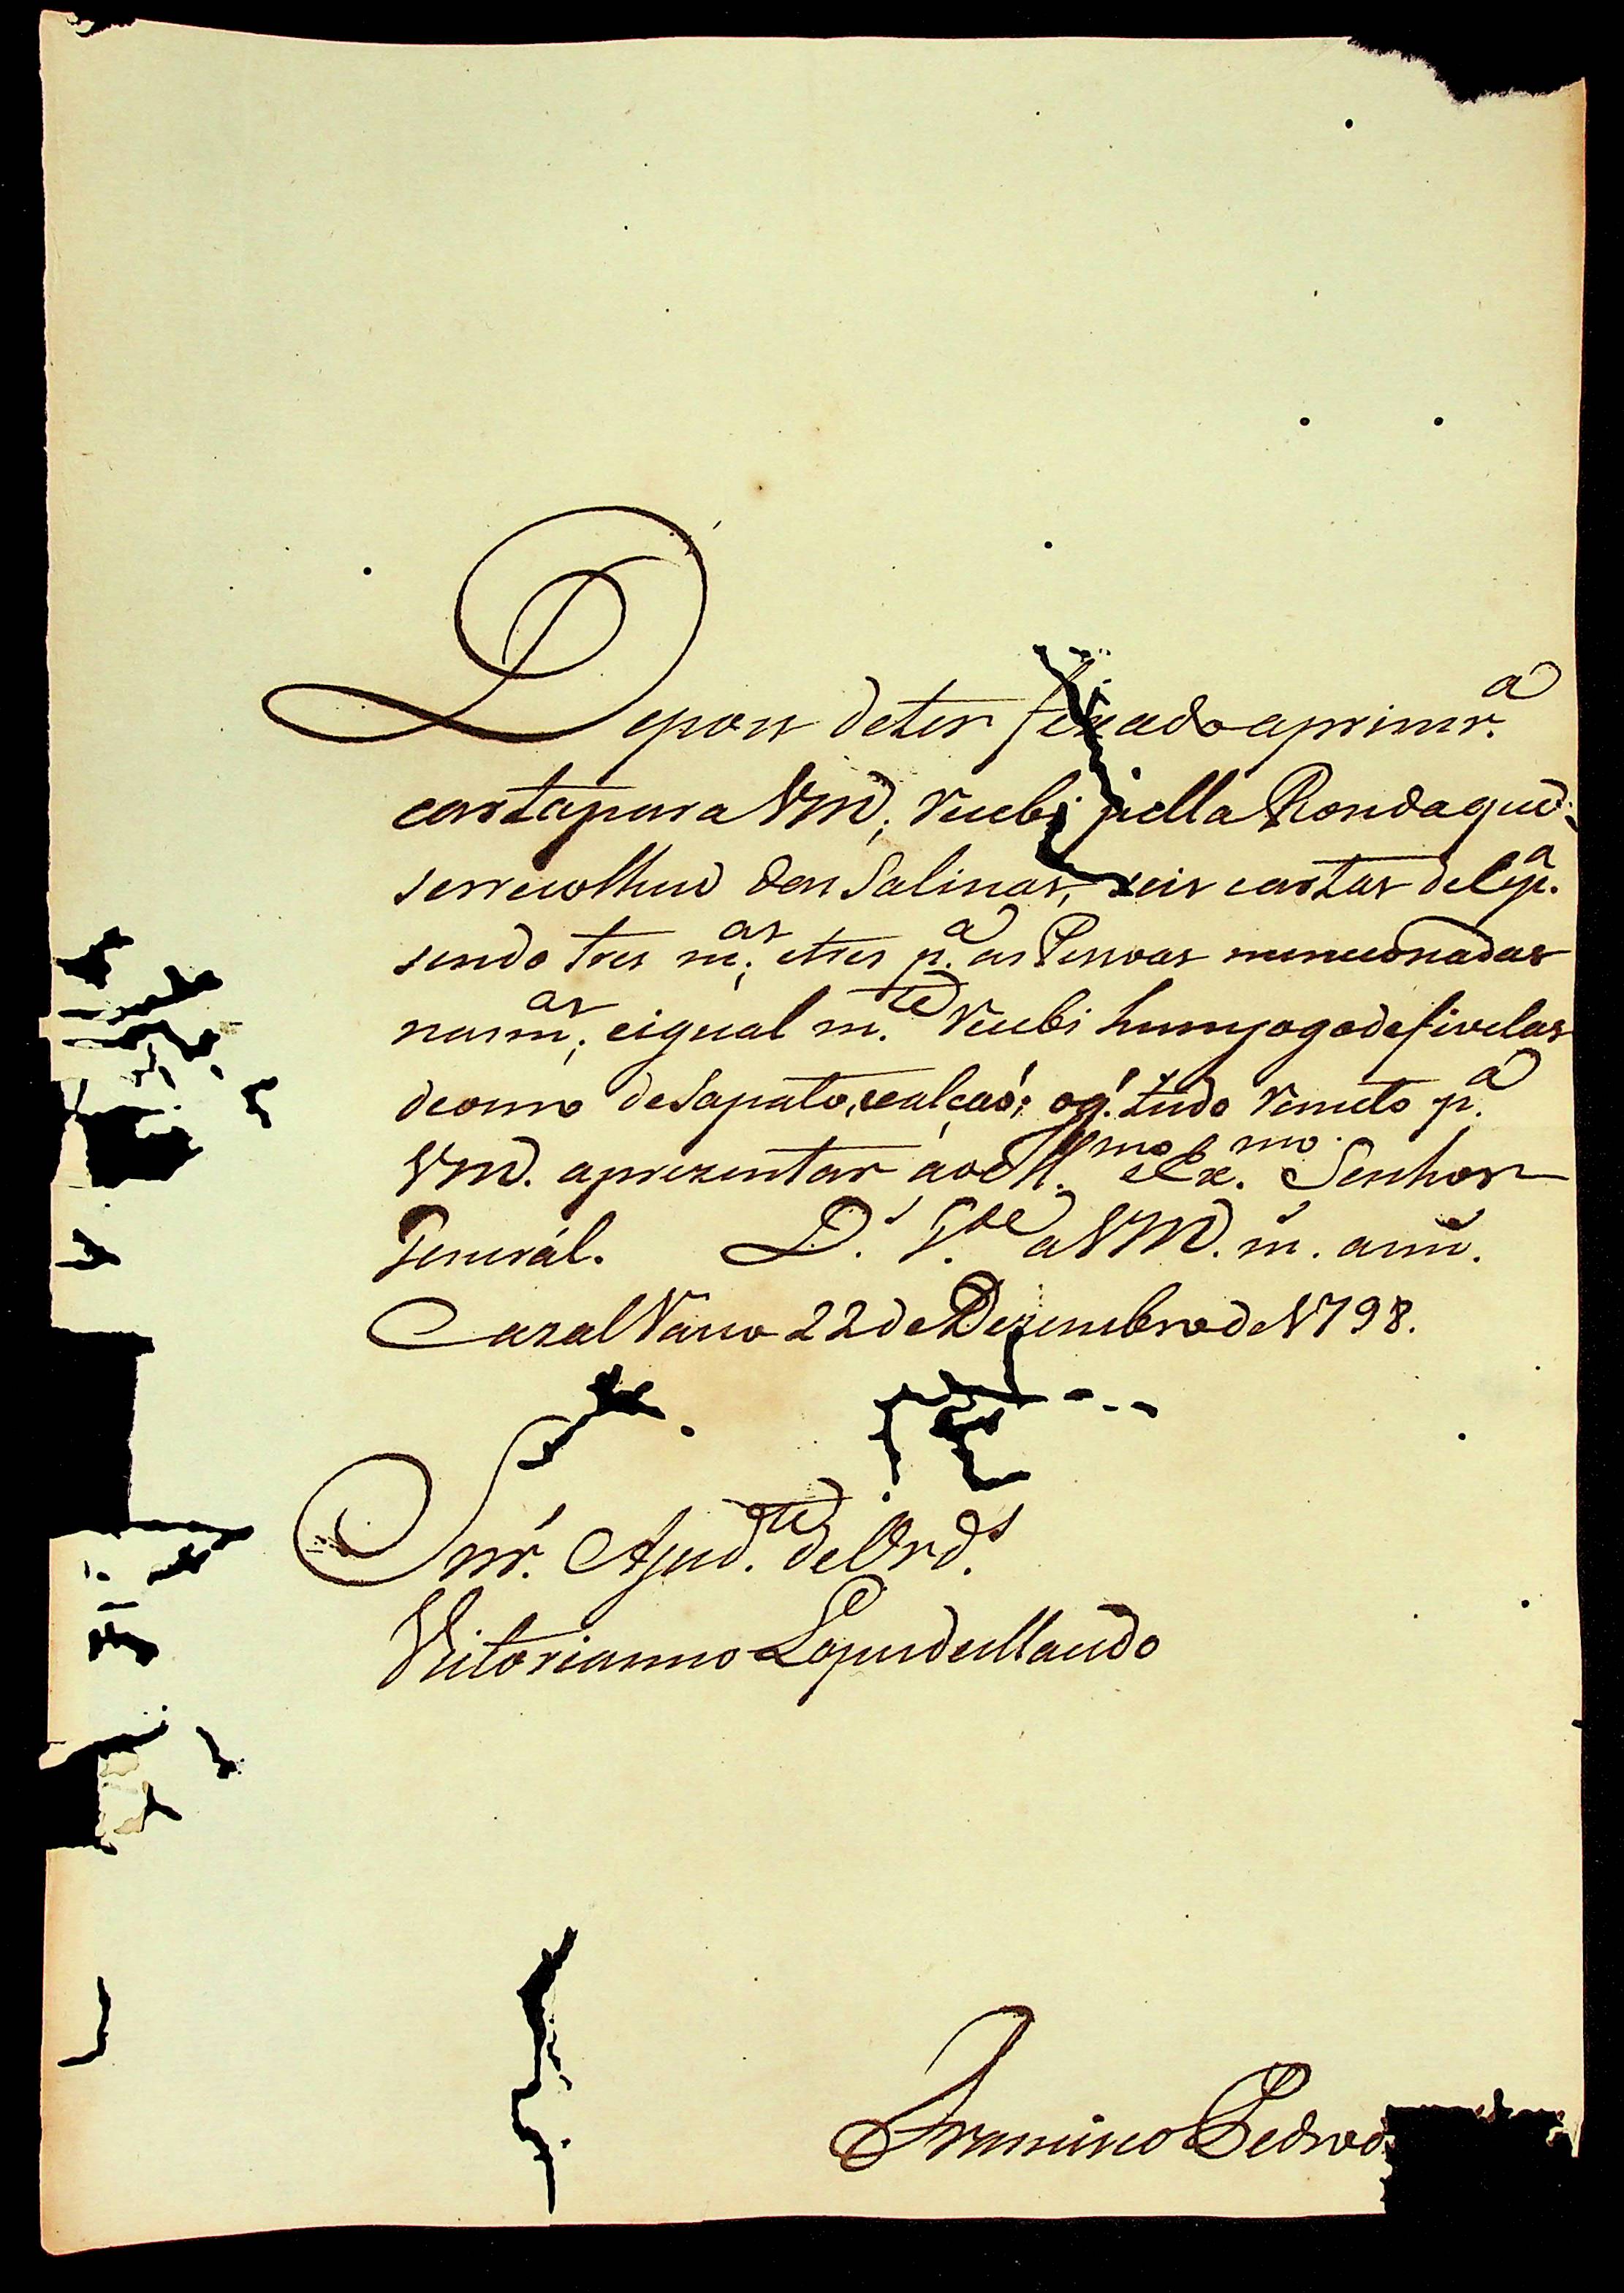 Depois deter fexado aprimr.ª
carta para VM; recebi pella Ronda que
serrecolheu das Salinas, seis cartas de Esp.ª
sendo tres m.as; e tres p.ª as Pessoas mencionadas
nas m.as; eigual m.te recebi hum jogo de fivelas
de ouro de Sapato, e calçaó; oq.' tudo remeto p.ª
VM. aprezentar ao Ill.mo e Ex.mo Senhor
General. D.s G.de a VM. m. ann.
Cazal Vasco 22 de Dezembro de 1798.
Snr. Ajud.te de Ord.s
Victorianno Lopes de Macedo
Francisco Pedro d